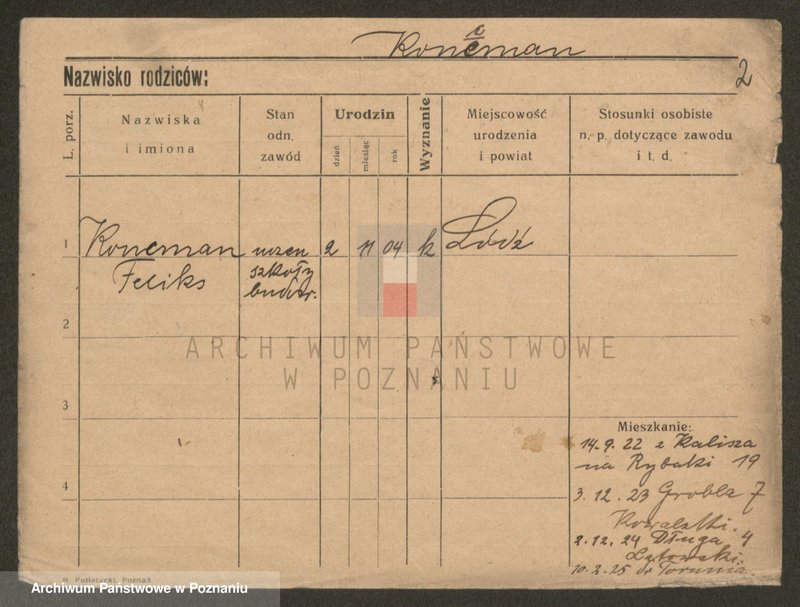 Koneman
2
Nazwisko rodziców:
L. porz.
Nazwiska
i imiona
Stan
odn.
zawód
Urodzin
dzień
miesiąc
rok
Wyznanie
Miejscowość
urodzenia
i powiat
Stosunki osobiste
n. p. dotyczące zawodu
i t. d.
1
Koneman uczen 2 11 04 k Łódź
Feliks szkoły
budow.
2
ARCHIWUM PAŃSTWOWE
W POZNANIU
3
Mieszkanie:
14.9.22 z Kalisza
na Rybaki 19
4
3.12.23 Grobla 7
Kowalski.
2.12.24 Długa 4
10.2.25 do Torunia
Poznań
Archiwum Państwowe w Poznaniu